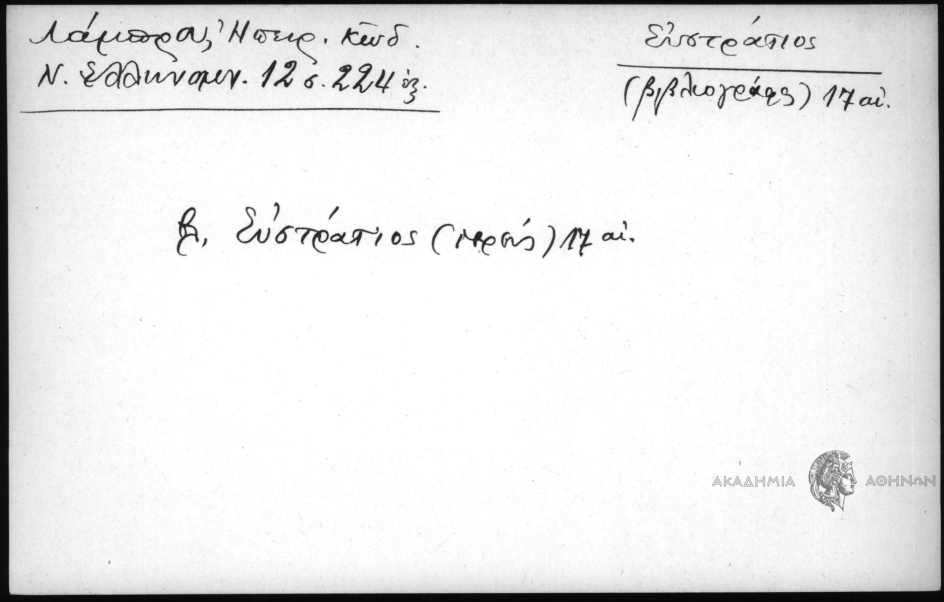 Λάμπρου, Ἠπειρ. Κωδ.
Ν. Ἑλληνομν. 12 σ. 224 ἑξ.
Εὐστράτιος
(βιβλιογράφος) 17 αἰ.
β. Εὐστράτιος (ἱερεύς) 17 αἰ.
ΑΚΑΔΗΜΙΑ ΑΘΗΝΩΝ